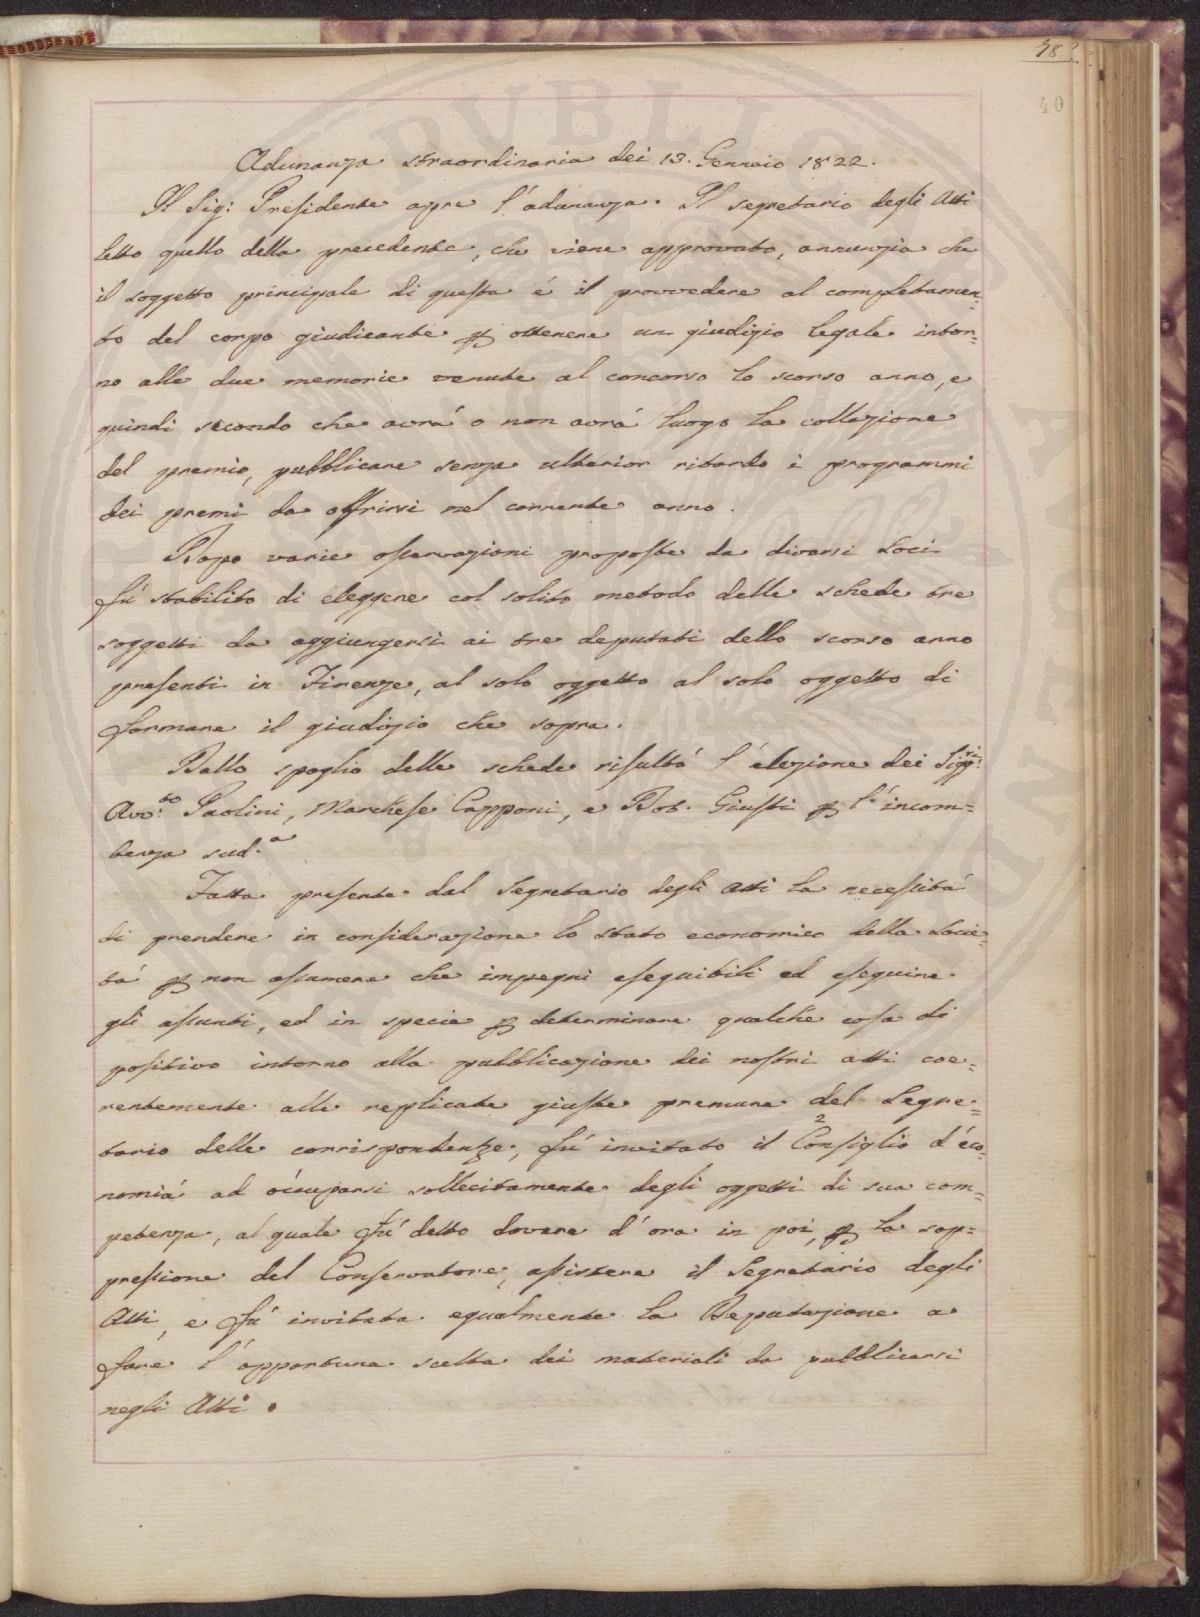 38
40
Adunanza straordinaria dei 13. Gennaio 1822.
Il Sig: Presidente apre l'adunanza. Il segretario degli Atti
letto quello della precedente, che viene approvato, annunzia che
il soggetto principale di questa é il provvedere al completamen=
to del corpo giudicante p ottenere un giudizio legale intor=
no alle due memorie venute al concorso lo scorso anno, e
quindi secondo che avrá o non avrá luogo la collazione
del premio, pubblicare senza ulterior ritardo i programmi
dei premi da offrirsi nel corrente anno.
Dopo varie osservazioni proposte da diversi Soci
fú stabilito di eleggere col solito metodo delle schede tre
soggetti da aggiungersi ai tre deputati dello scorso anno
presenti in Firenze, al solo oggetto al solo oggetto di
formare il giudizio che sopra.
Dallo spoglio delle schede risultó l'elezione dei Sigg.ri
Avv.to Paolini, Marchese Capponi, e Dot. Giusti p l'incom=
benza sud.a
Fatta presente dal Segretario degli Atti la necessitá
di prendere in considerazione lo stato economico della Socie=
tá p non assumere che impegni eseguibili ed eseguire
gli assunti, ed in specie p determinare qualche cosa di
positivo intorno alla pubblicazione dei nostri atti coe=
rentemente alle replicate giuste premure del Segre=
tario delle corrispondenze, fú invitato il 2 Consiglio d'eco=
nomia ad occuparsi sollecitamente degli oggetti di sua com=
petenza, al quale fú detto dovere d'ora in poi, p la sop=
pressione del Conservatore, assistere il Segretario degli
Atti, e fú invitata egualmente la Deputazione a
fare l'opportuna scelta dei materiali da pubblicarsi
negli Atti.